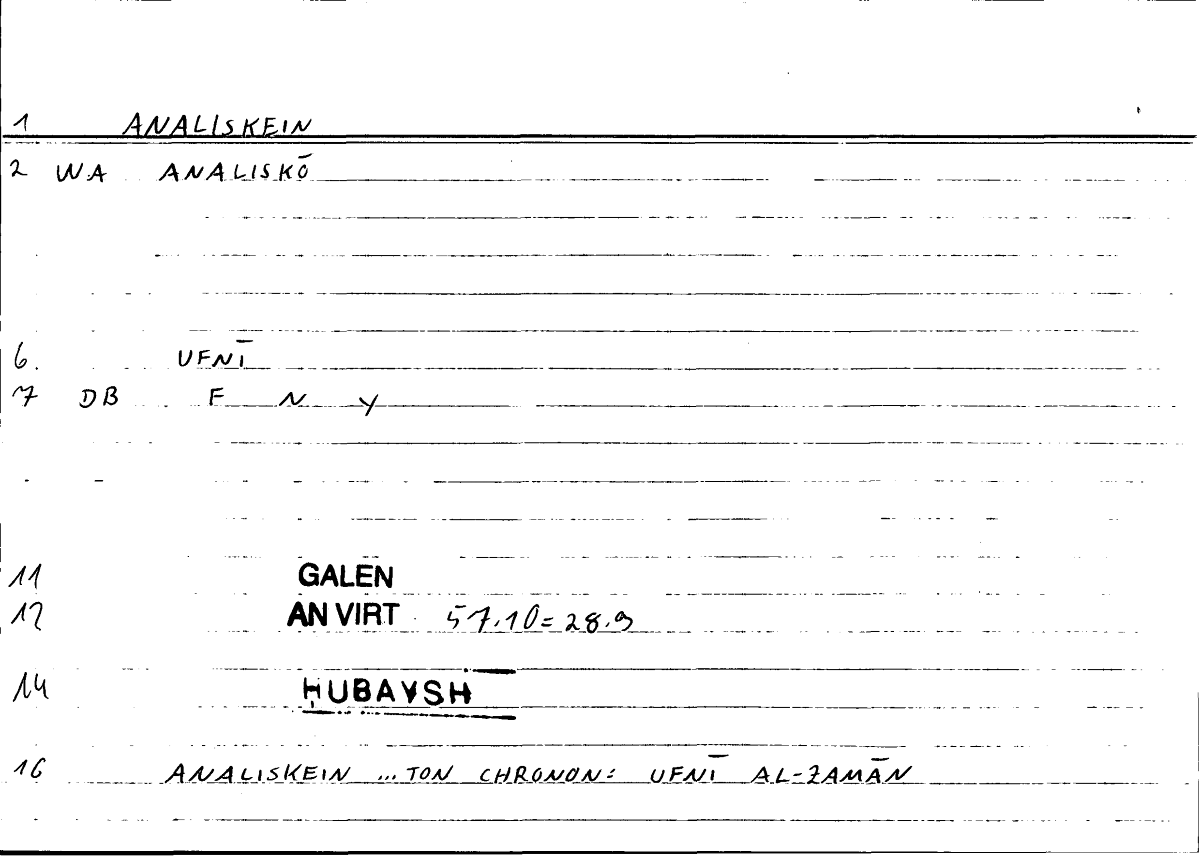 1 ANALISKEIN
2 WA ANALISKŌ
6. UFNĪ
7 DB F N Y
11 GALEN
12 AN VIRT 57.10=28.9
14 ḤUBAYSH
16 ANALISKEIN ... TON CHRONON: UFNĪ AL-ZAMĀN